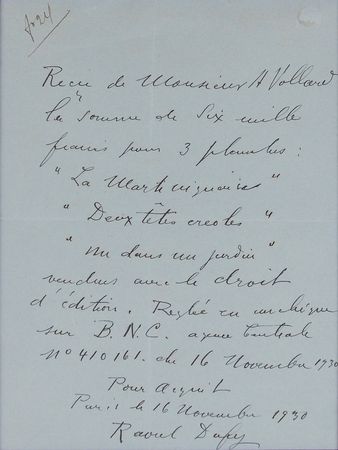 Reçu de Monsieur A Vollard
la somme de Six mille
francs pour 3 planches :
"La Martiniquaise"
"Deux têtes creoles"
"nu dans un jardin"
vendues avec le droit
d'édition. Reglée en un chèque
sur B.N.C. agence Centrale
N° 410161. du 16 Novembre 1930
Pour Acquit
Paris le 16 Novembre 1930
Raoul Dufy